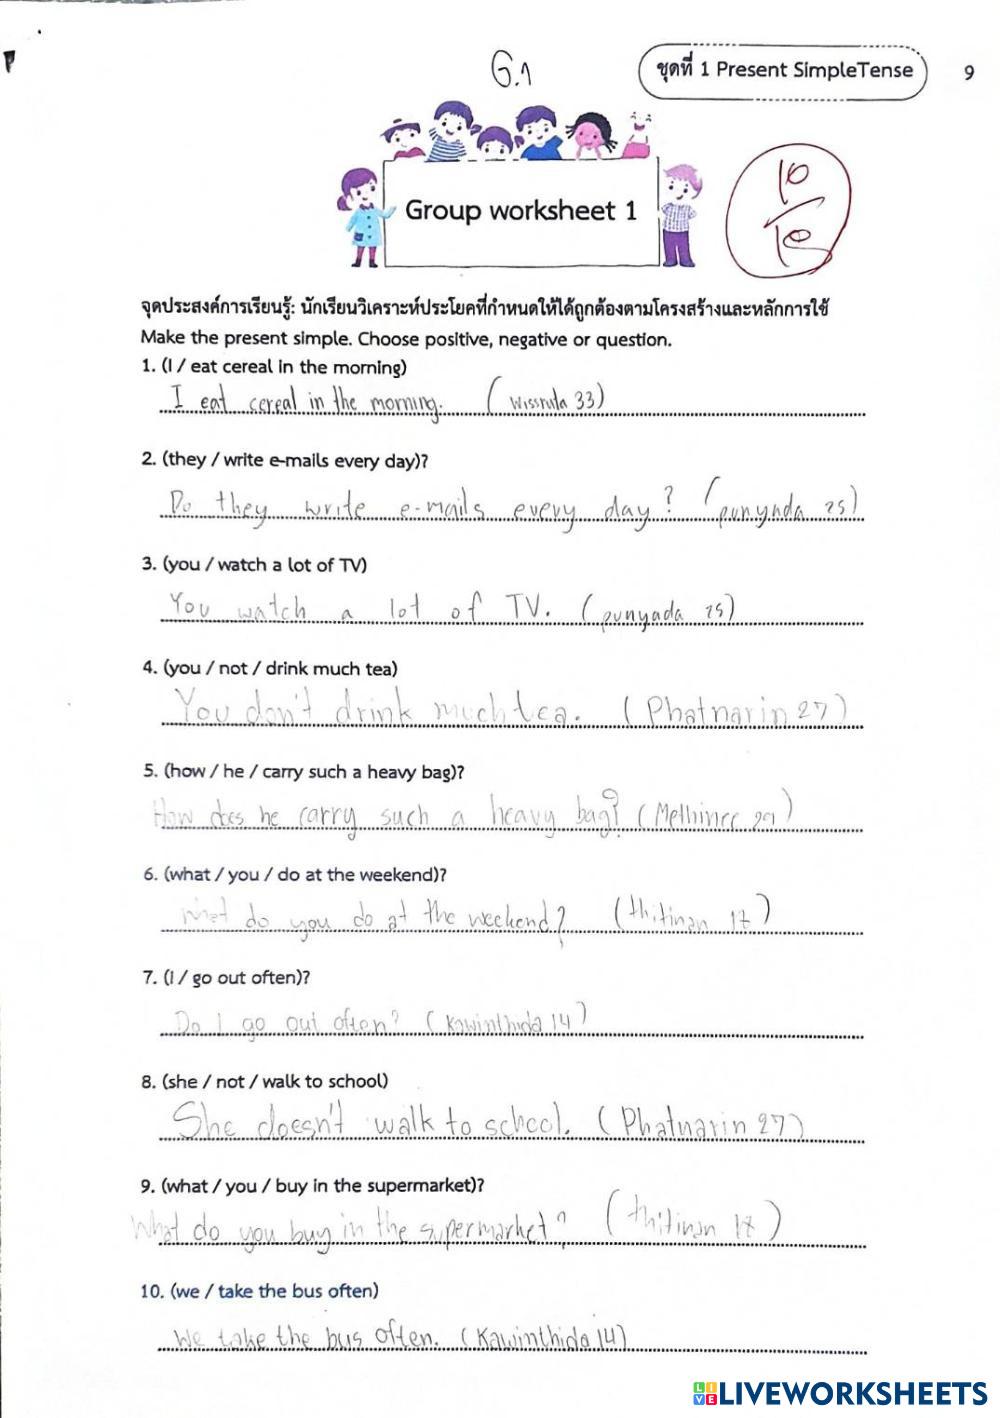 G.1
ชุดที่ 1 Present SimpleTense
9
Group worksheet 1
10
10
จุดประสงค์การเรียนรู้: นักเรียนวิเคราะห์ประโยคที่กำหนดให้ได้ถูกต้องตามโครงสร้างและหลักการใช้
Make the present simple. Choose positive, negative or question.
1. (I / eat cereal in the morning)
I eat cereal in the morning. ( 33)
2. (they / write e-mails every day)?
Do they write e-mails every day? (punynda 25)
3. (you / watch a lot of TV)
You watch a lot of TV. (punyada 25)
4. (you / not / drink much tea)
You don't drink much tea. (Phatnarin 27)
5. (how / he / carry such a heavy bag)?
How does he carry such a heavy bag? (Methinee 29)
6. (what / you / do at the weekend)?
What do you do at the weekend? (thitinan 17)
7. (I / go out often)?
Do I go out often? (Kawinthida 14)
8. (she / not / walk to school)
She doesn't walk to school. (Phatnarin 27)
9. (what / you / buy in the supermarket)?
What do you buy in the supermarket? (thitinan 17)
10. (we / take the bus often)
We take the bus often. (Kawinthida 14)
LIVEWORKSHEETS